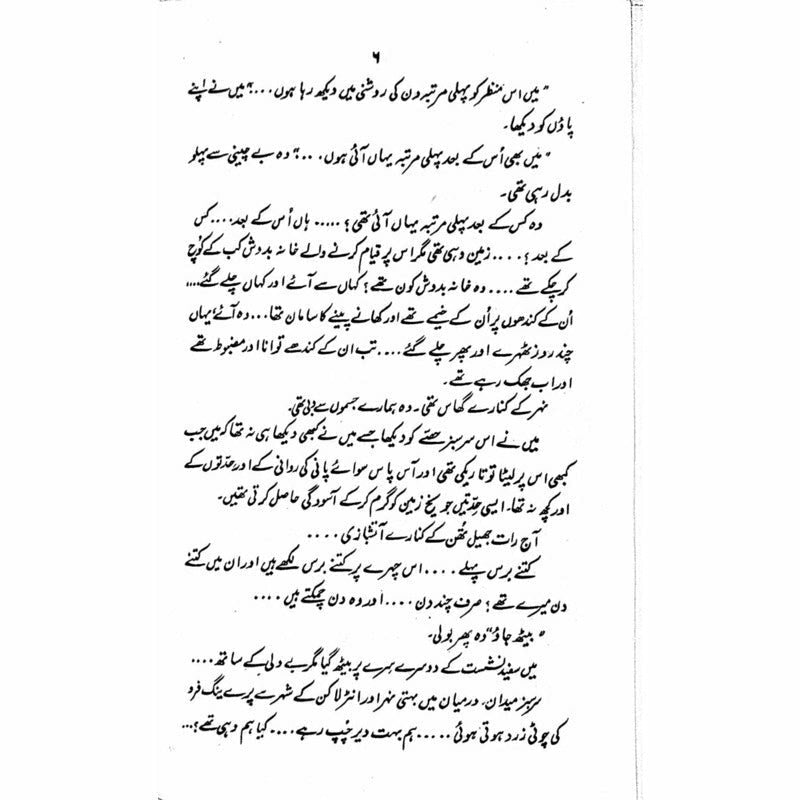 ۶
"میں اس منظر کو پہلی مرتبہ دن کی روشنی میں دیکھ رہا ہوں...." میں نے اپنے
پاؤں کو دیکھا۔
"میں بھی اُس کے بعد پہلی مرتبہ یہاں آئی ہوں....." وہ بے چینی سے پہلو
بدل رہی تھی۔
وہ کس کے بعد پہلی مرتبہ یہاں آئی تھی؟ ..... ہاں اُس کے بعد.... کس
کے بعد؟ .... زمین وہی تھی مگر اس پر قیام کرنے والے خانہ بدوش کب کے کُوچ
کر چکے تھے .... وہ خانہ بدوش کون تھے؟ کہاں سے آئے اور کہاں چلے گئے....
اُن کے کندھوں پر اُن کے خیمے تھے اور کھانے پینے کا سامان تھا... وہ آئے، یہاں
چند روز ٹھہرے اور پھر چلے گئے .... تب ان کے کندھے توانا اور مضبوط تھے
اور اب جھک رہے تھے۔
نہر کے کنارے گھاس تھی۔ وہ ہمارے جسموں سے دبی تھی۔
میں نے اس سرسبز حصّے کو دیکھا جسے میں نے کبھی دیکھا ہی نہ تھا کہ میں جب
کبھی اس پر لیٹا تو تاریکی تھی اور آس پاس سوائے پانی کی روانی کے اور حدّتوں کے
اور کچھ نہ تھا۔ ایسی حِدّتیں جو یخ زمین کو گرم کر کے آسودگی حاصل کرتی تھیں۔
آج رات جھیل تُھن کے کنارے آتشبازی ....
کتنے برس پہلے .... اس چہرے پر کتنے برس لکھے ہیں اور ان میں کتنے
دن میرے تھے؟ صرف چند دن .... اور وہ دن چمکتے ہیں ....
"بیٹھ جاؤ" وہ پھر بولی۔
میں سفید نشست کے دوسرے سِرے پر بیٹھ گیا مگر بے دلی کے ساتھ ....
سرسبز میدان۔ درمیان میں بہتی نہر اور انٹرلاکن کے شہر سے پرے ینگ فرو
کی چوٹی زرد ہوتی ہوئی ..... ہم بہت دیر چُپ رہے .... کیا ہم وہی تھے؟...